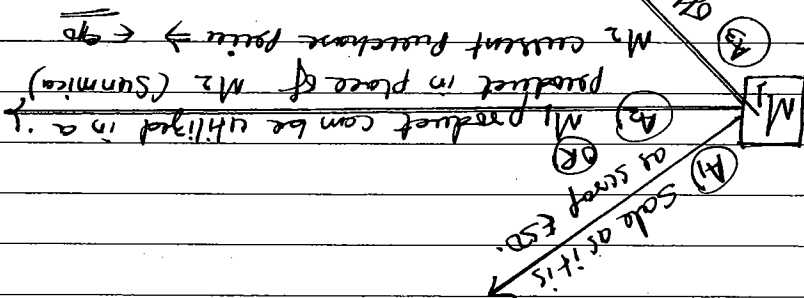 M1
A1 Sale as it is
as scrap ₹50.
OR
A2 M1 product can be utilized in a :
product in place of M2 (Sunmica)
M2 current Purchase Price → ₹ 90
A3